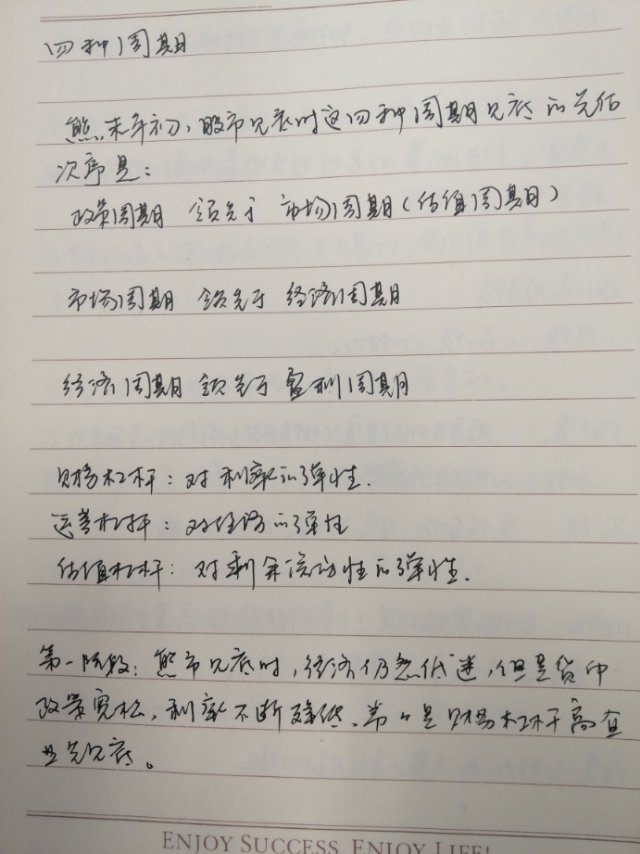 四种周期
熊末牛初，股市见底时这四种周期见底的先后
次序是：
政策周期 领先于 市场周期（估值周期）
市场周期 领先于 经济周期
经济周期 领先于 盈利周期
财务杠杆：对利率的弹性.
运营杠杆：对经济的弹性
估值杠杆：对剩余流动性的弹性.
第一阶段：熊市见底时，经济仍然低迷，但是货币
政策宽松，利率不断降低、常常是财务杠杆高企
业先见底。
ENJOY SUCCESS, ENJOY LIFE!